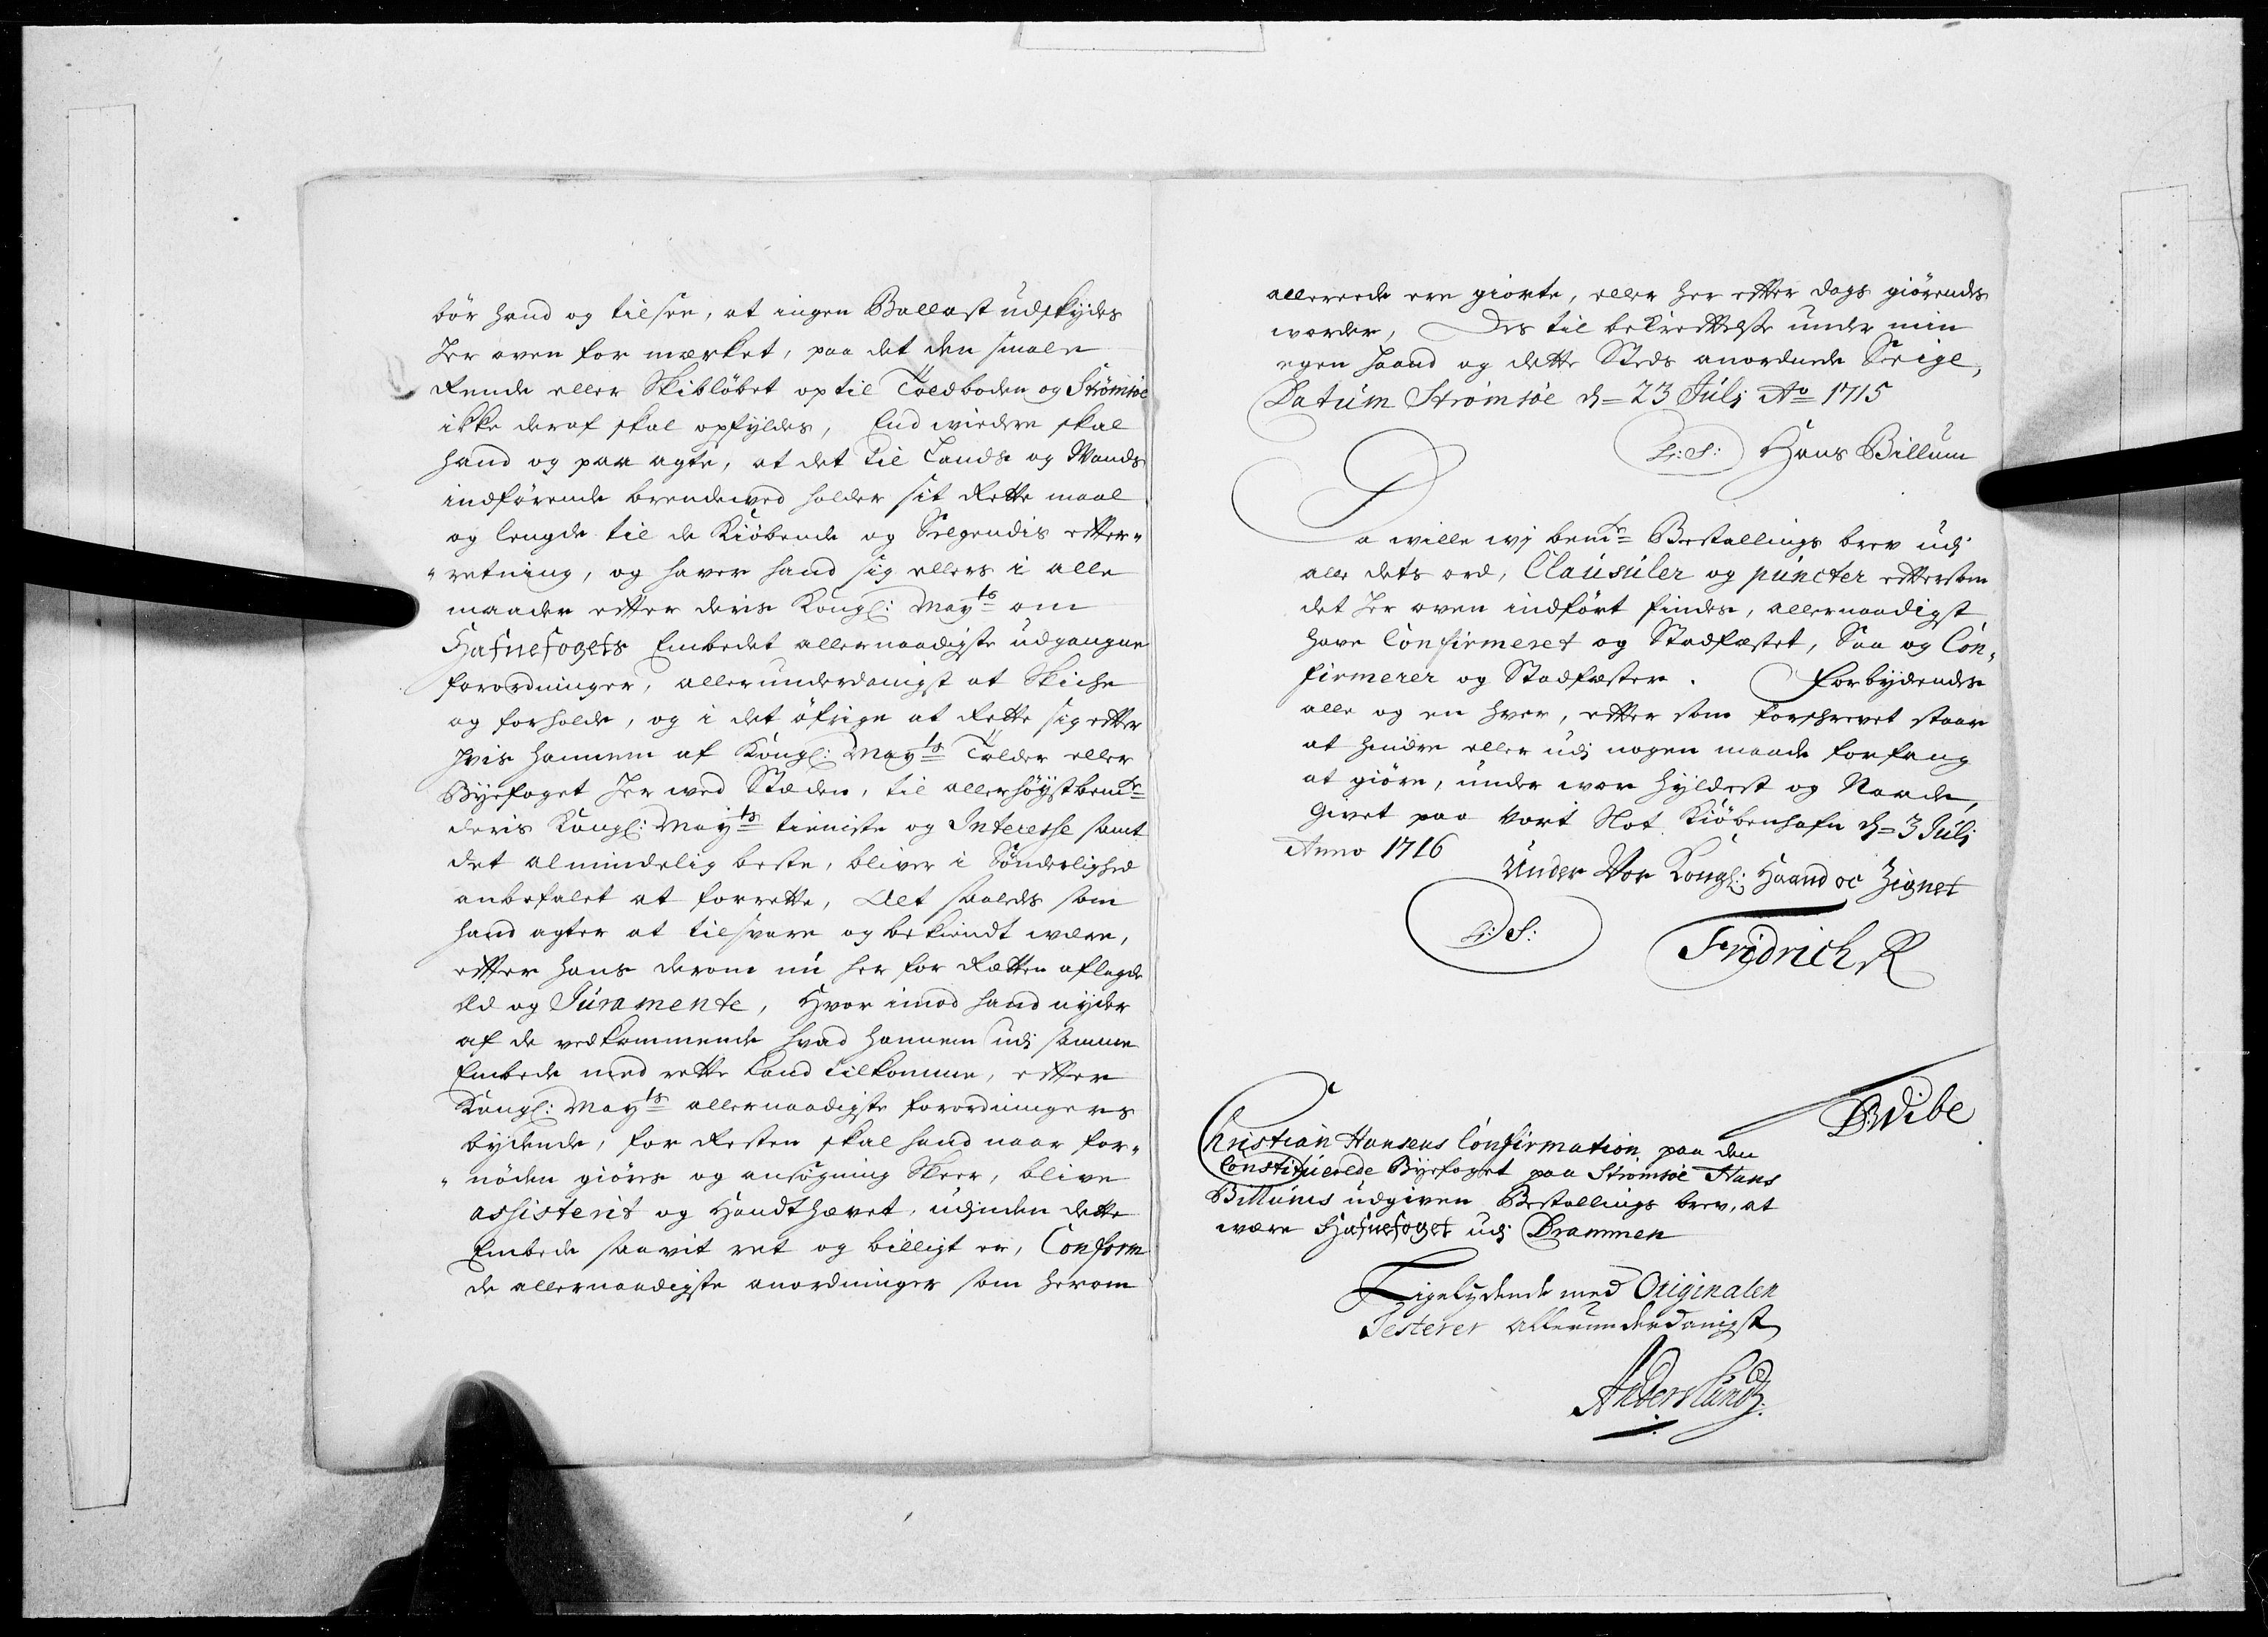 bör hand og tilsee, at ingen Ballast udskydes
Her oven for mærket, paa det den smale
Rende eller Skibløbet op til Toldboden og Strömsöe
ikke deraf skal opfyldes, End widere skal
hand og paa agte, at det til Lands og Wands
indförende brendeved holder sit Rette maal
og lengde til de Kiöbende og Selgendis effter„
„retning, og haver hand sig ellers i alle
maader effter deris Kongl: Mayts om
Hafnefogets Embedet allernaadigste udgangne
forordninger, allerunderdanigst at Skiche
og forholde, og i det öfrige at Rette sig effter
hvis hannem af Kongl: Mayts Tolder eller
Byefoget Her wed Stæden, til allerhöystbemte
deris Kongl: Mayts tieniste og Interesse samt
det almindelig beste, bliver i Sönderlighed
anbefalet at forrette, Alt saaledes som
hand agter at tilsvare og bekiendt være,
effter hans derom nu her for Rætten aflagde
Eed og Juramente, Hvor imod hand nyder
af de vedkommende hvad hannem udj samme
Embede med rette kand tilkomme, effter
Kongl: Mayts allernaadigste forordningers
bydende, for Resten skal hand naar for„
„nöden giöres og ansögning Skeer, blive
assisterit og Handthævet, udinden dette
Embede saavit ret og billigt er, Conform
de allernaadigste anordninger som herom
allereede ere giorte, eller her effter dags giörendes
worder, Des til bekræfftelse under min
egen haand og dette Steds anordnede Seigl,
Datum Strömsöe d= 23 Julj Ao 1715
L:S: Hans Billum
Da wille wj bemte Bestallings brev udj
alle dets ord, Clausuler og puncter effter som
det Her oven indfört findes, allernaadigst
have Confirmeret og Stadfæstet, Saa og Con„
firmerer og Stadfæster. Forbydendes
alle og en hver, effter som forschrevet staar
at hindre eller udj nogen maade forfang
at giöre, under wor Hyldest og Naade,
Givet paa Vort Slot Kiöbenhafn d= 3 Julj
Anno 1716
Under Vor Kongl: Haand oc Zignet
L:S:
Fridrich R
D Wibe
Christian Hansens Confirmation paa den
Constituerede Byefoget paa Strömsöe Hans
Billums udgiven Bestallings brev, at
være Hafnefoget udj Drammen
Ligelydende med Originalen
Testerer allerunderdanigst
Anders Lund.